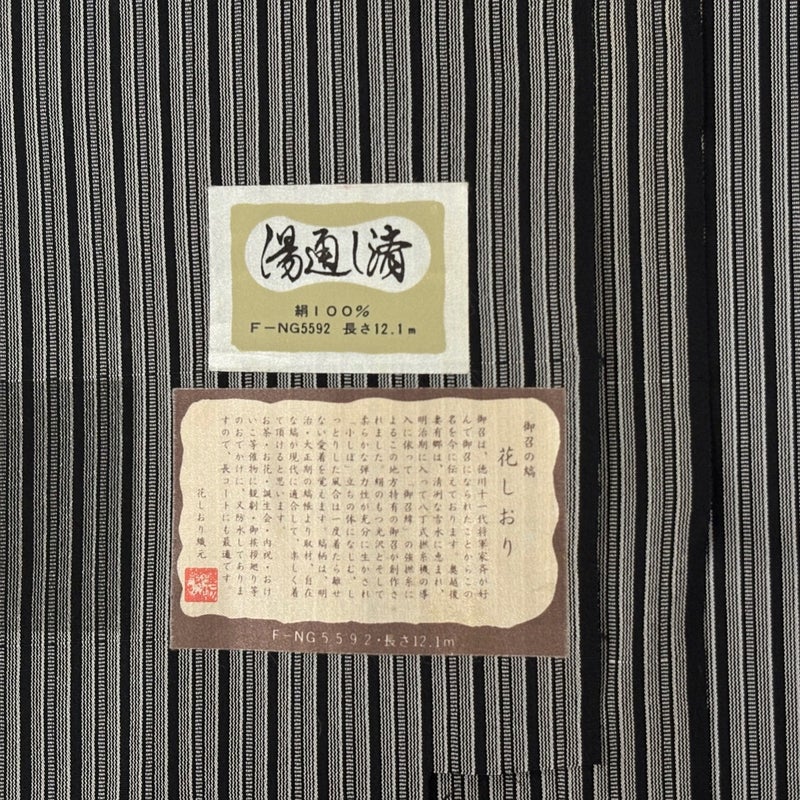 湯通し済
絹100%
F-NG5592 長さ12.1m
御召の縞
花しおり
御召は、徳川十一代将軍家斉が好
んで御召になられたことからこの
名を今に伝えております。奥越後
妻有郷は、清冽な雪水に恵まれ、
明治期に入って八丁式撚糸機の導
入に依って「御召緯」の強撚糸に
よるこの地方特有の御召が創作さ
れました。絹のもつ光沢とそして
柔らかな弾力性が充分に生かされ
「小しぼ」立ちの体になじむ、し
っとりした風合は一度着たら離せ
ない愛着を覚えます。縞柄は、明
治・大正期の縞帳より取材、自在
な縞が現代に適合して、楽しく着
て頂けると思います。
お茶・お花・誕生会・内祝・おけ
いこ等催物に観劇・御挨拶廻り等
のおでかけに、又防水してありま
すので、長コートにも最適です。
花しおり織元
F-NG5592・長さ12.1m